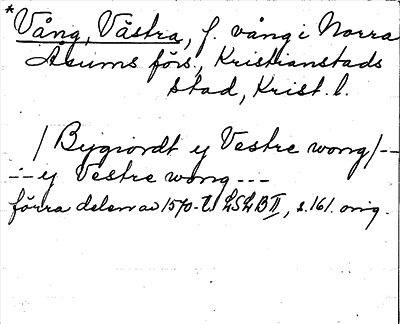 * Vång, Västra, f. vång i Norra
Åsums förs., Kristianstads
stad, Krist. l.
/ Bygiordt y Vestre wong / --
-- y Vestre wong ---
förra delen av 1570-t. LSLB II, s. 161. orig.